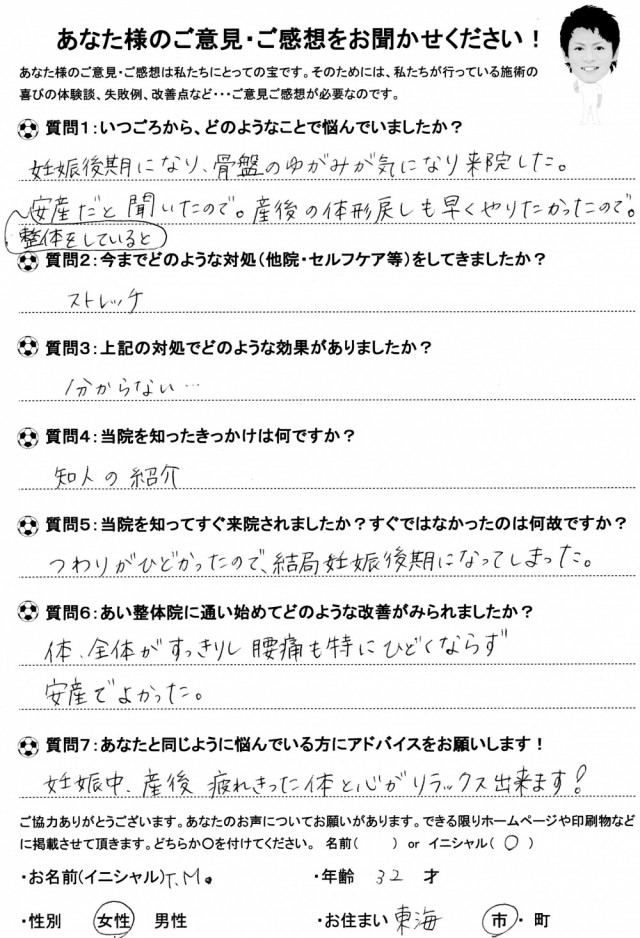 あなた様のご意見・ご感想をお聞かせください！
あなた様のご意見・ご感想は私たちにとっての宝です。そのためには、私たちが行っている施術の
喜びの体験談、失敗例、改善点など・・・ご意見ご感想が必要なのです。
質問1：いつごろから、どのようなことで悩んでいましたか？
妊娠後期になり、骨盤のゆがみが気になり来院した。
安産だと聞いたので。産後の体形戻しも早くやりたかったので。
整体をしていると
質問2：今までどのような対処（他院・セルフケア等）をしてきましたか？
ストレッチ
質問3：上記の対処でどのような効果がありましたか？
分からない…
質問4：当院を知ったきっかけは何ですか？
知人の紹介
質問5：当院を知ってすぐ来院されましたか？すぐではなかったのは何故ですか？
つわりがひどかったので、結局妊娠後期になってしまった。
質問6：あい整体院に通い始めてどのような改善がみられましたか？
体、全体がすっきりし腰痛も特にひどくならず
安産でよかった。
質問7：あなたと同じように悩んでいる方にアドバイスをお願いします！
妊娠中、産後 疲れきった体と心がリラックス出来ます！
ご協力ありがとうございます。あなたのお声についてお願いがあります。できる限りホームページや印刷物など
に掲載させて頂きます。どちらか〇を付けてください。 名前（ ） or イニシャル（ 〇 ）
・お名前(イニシャル)T.M. ・年齢 32 才
・性別 女性 男性 ・お住まい 東海 市・町